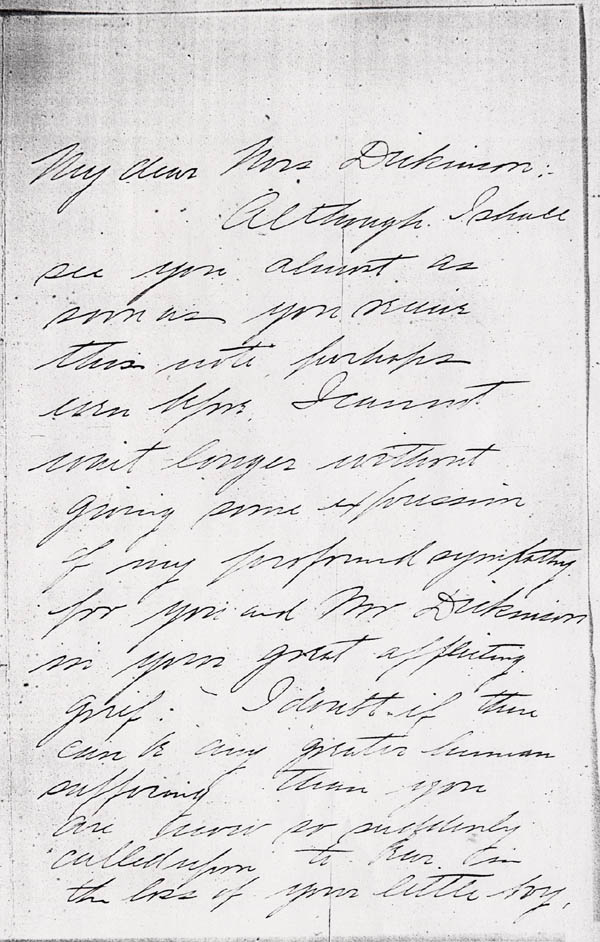 My dear Mrs Dickinson:-
Although I shall
see you almost as
soon as you receive
this note, perhaps
even before, I cannot
wait longer without
giving some expression
of my profound sympathy
for you and Mr Dickinson
in your great afflicting
grief. - I doubt if there
can be any greater human
suffering than you
are now so suddenly
called upon to bear in
the loss of your little boy,